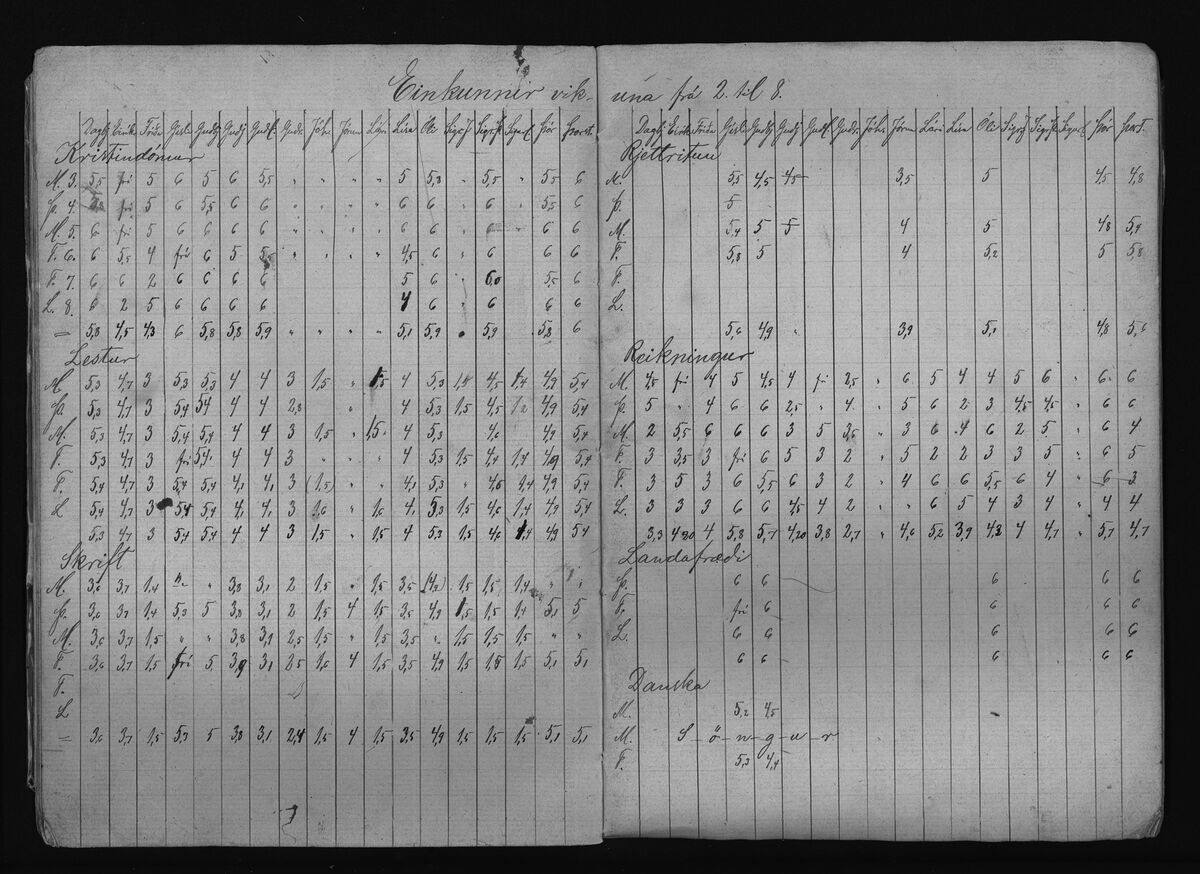 Einkunnir vik- una frá 2. til 8.
Dagbj Eirík Fríða Gísli Guðbj Guðj Guðl Guðr Jóh. Jórun Lári Lára Óli Sigríj Sigríþ Sigurl Þór Þorst.
Kristindómur
M. 3. 5,5 frí 5 6 5 6 5,5 " " " " 5 5,8 " 5,5 " 5,5 6
Þ. 4. frí 5 6 5,5 6 6 " " " " 6 6 " 6 " 5,5 6
M. 5. 6 frí 5 6 6 6 6 " " " " 6 6 " 6 " 6 6
F. 6. 6 5,5 4 frí 6 5 5,5 " " " " 4,5 6 " 6 " 6 6
F. 7. 6 6 2 6 6 6 6 5 6 " 6,0 5,5 6
L. 8. 6 2 5 6 6 6 6 4 6 " 6 6 6
= 5,8 4,5 4,3 6 5,8 5,8 5,9 " " " " 5,1 5,9 " 5,9 " 5,8 6
Lestur
M. 5,3 4,7 3 5,3 5,3 4 4 3 1,5 " 1,5 4 5,3 1,5 4,5 1,4 4,9 5,4
Þ. 5,3 4,7 3 5,4 5,4 4 4 2,8 " 4 5,3 1,5 4,5 1,2 4,9 5,4
M. 5,3 4,7 3 5,4 5,4 4 4 3 1,5 " 1,5 4 5,3 4,6 4,9 5,4
F. 5,3 4,7 3 frí 5,4 4 4 3 " " 4 5,3 1,5 4,4 1,4 4,9 5,4
F. 5,4 4,7 3 5,4 5,4 4,1 4,1 3 (1,5) " " 4,1 5,3 " 4,6 1,4 4,9 5,4
L 5,4 4,7 3 5,4 5,4 4,1 4,1 3 1,6 " 1,6 4,1 5,3 1,5 4,6 1,4 4,9 5,4
5,3 4,7 3 5,4 5,4 4 4 3 1,5 " 1,5 4 5,3 1,5 4,6 1,4 4,9 5,4
Skrift
M. 3,6 3,7 1,4 " 3,8 3,1 2 1,5 " 1,5 3,5 (4,9) 1,5 1,5 1,4 " "
Þ. 3,6 3,7 1,4 5,3 5 3,8 3,1 2 1,5 4 1,5 3,5 4,9 1,5 1,5 1,4 5,1 5
M. 3,6 3,7 1,5 " " 3,8 3,9 2,5 1,5 " 1,5 3,5 " 1,5 1,5 1,5 " "
F. 3,6 3,7 1,5 frí 5 3,9 3,1 2,5 1,6 4 1,5 3,5 4,9 1,5 1,5 1,5 5,1 5,1
F.
L
= 3,6 3,7 1,5 5,7 5 3,8 3,1 2,4 1,5 4 1,5 3,5 4,9 1,5 1,5 1,5 5,1 5,1
Dagbj Eirík Fríða Gísli Guðbj Guðj Guðl Guðr Jóh. Jórun Lári Lára Óli Sigríj Sigríþ Sigurl Þór Þorst.
Rjettritun
M. 5,5 4,5 4,5 3,5 5 4,5 4,8
Þ. 5
M. 5,4 5 5 4 6 4,8 5,9
F. 5,8 5 4 5,2 5 5,8
F.
L.
5,6 4,9 " 3,9 5,1 4,8 5,6
Reikningur
M. 4,5 frí 4 5 4,5 4 frí 2,5 " 6 5 4 4 5 6 " 6 6
Þ. 5 " 4 6 6 2,5 " 4 " 5 6 2 3 4,5 4,5 " 6 6
M. 2 5,5 6 6 6 3 5 3,5 " 3 6 4 6 2 5 " 6 4
F. 3 3,5 3 frí 6 5 3 2 " 5 2 2 3 3 5 " 6 5
F. 3 5 3 6 5,5 6 3 2 " 4 6 6 5,5 6 4 " 6 3
L. 3 3 3 6 6 4,5 4 " " 6 5 4 3 4 " 4 4
3,3 4,20 4 5,8 5,7 4,20 3,8 2,7 " 4,6 5,2 3,9 4,3 4 4,7 " 5,7 4,7
Landafræði
Þ. 6 6 6 6 6
F. frí 6 6 6 6
L. 6 6 6 6 6
6 6 6 6 6
Danska
M. 5,2 4,5
M. S-ö-n-g-u-r
F. 5,3 4,4